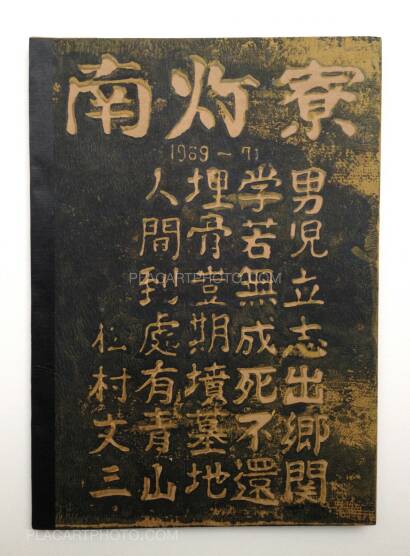 PLACARTPHOTO.COM
南灯寮
1969～71
男児立志出郷関
学若無成死不還
埋骨豈期墳墓地
人間到處有青山
村文三
PLACARTPHOTO.COM
PLACARTPHOTO.COM